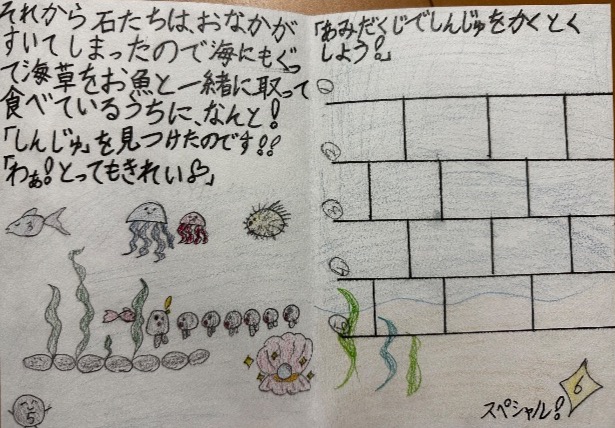 それから石たちは、おなかが
すいてしまったので海にもぐっ
て海草をお魚と一緒に取って
食べているうちに、なんと!
「しんじゅ」を見つけたのです!!
「わぁ!とってもきれい♡」
5
「あみだくじでしんじゅをかくとく
しよう!」
スペシャル!
6